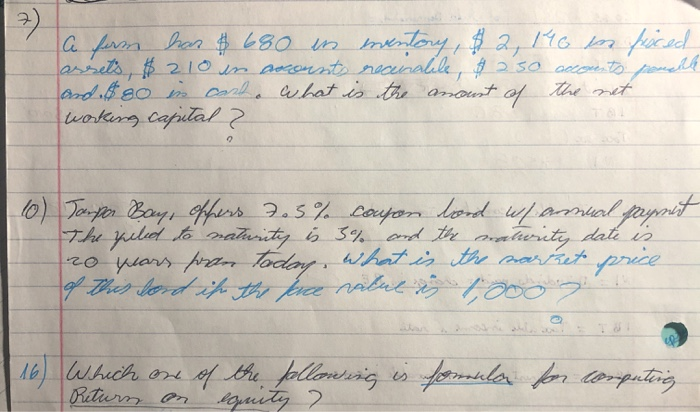 7)
a firm has $ 680 in inventory, $ 2,140 in fixed
assets, $ 210 in accounts receivable, $ 250 accounts payable
and $80 in cash. What is the amount of the net
working capital?
10) Tampa Bay, offers 7.5% coupon bond w/ annual payment
The yield to maturity is 5% and the maturity date is
20 years from today. What is the market price
of this bond if the face value is 1,000?
16) Which one of the following is formula for computing
Return on equity?